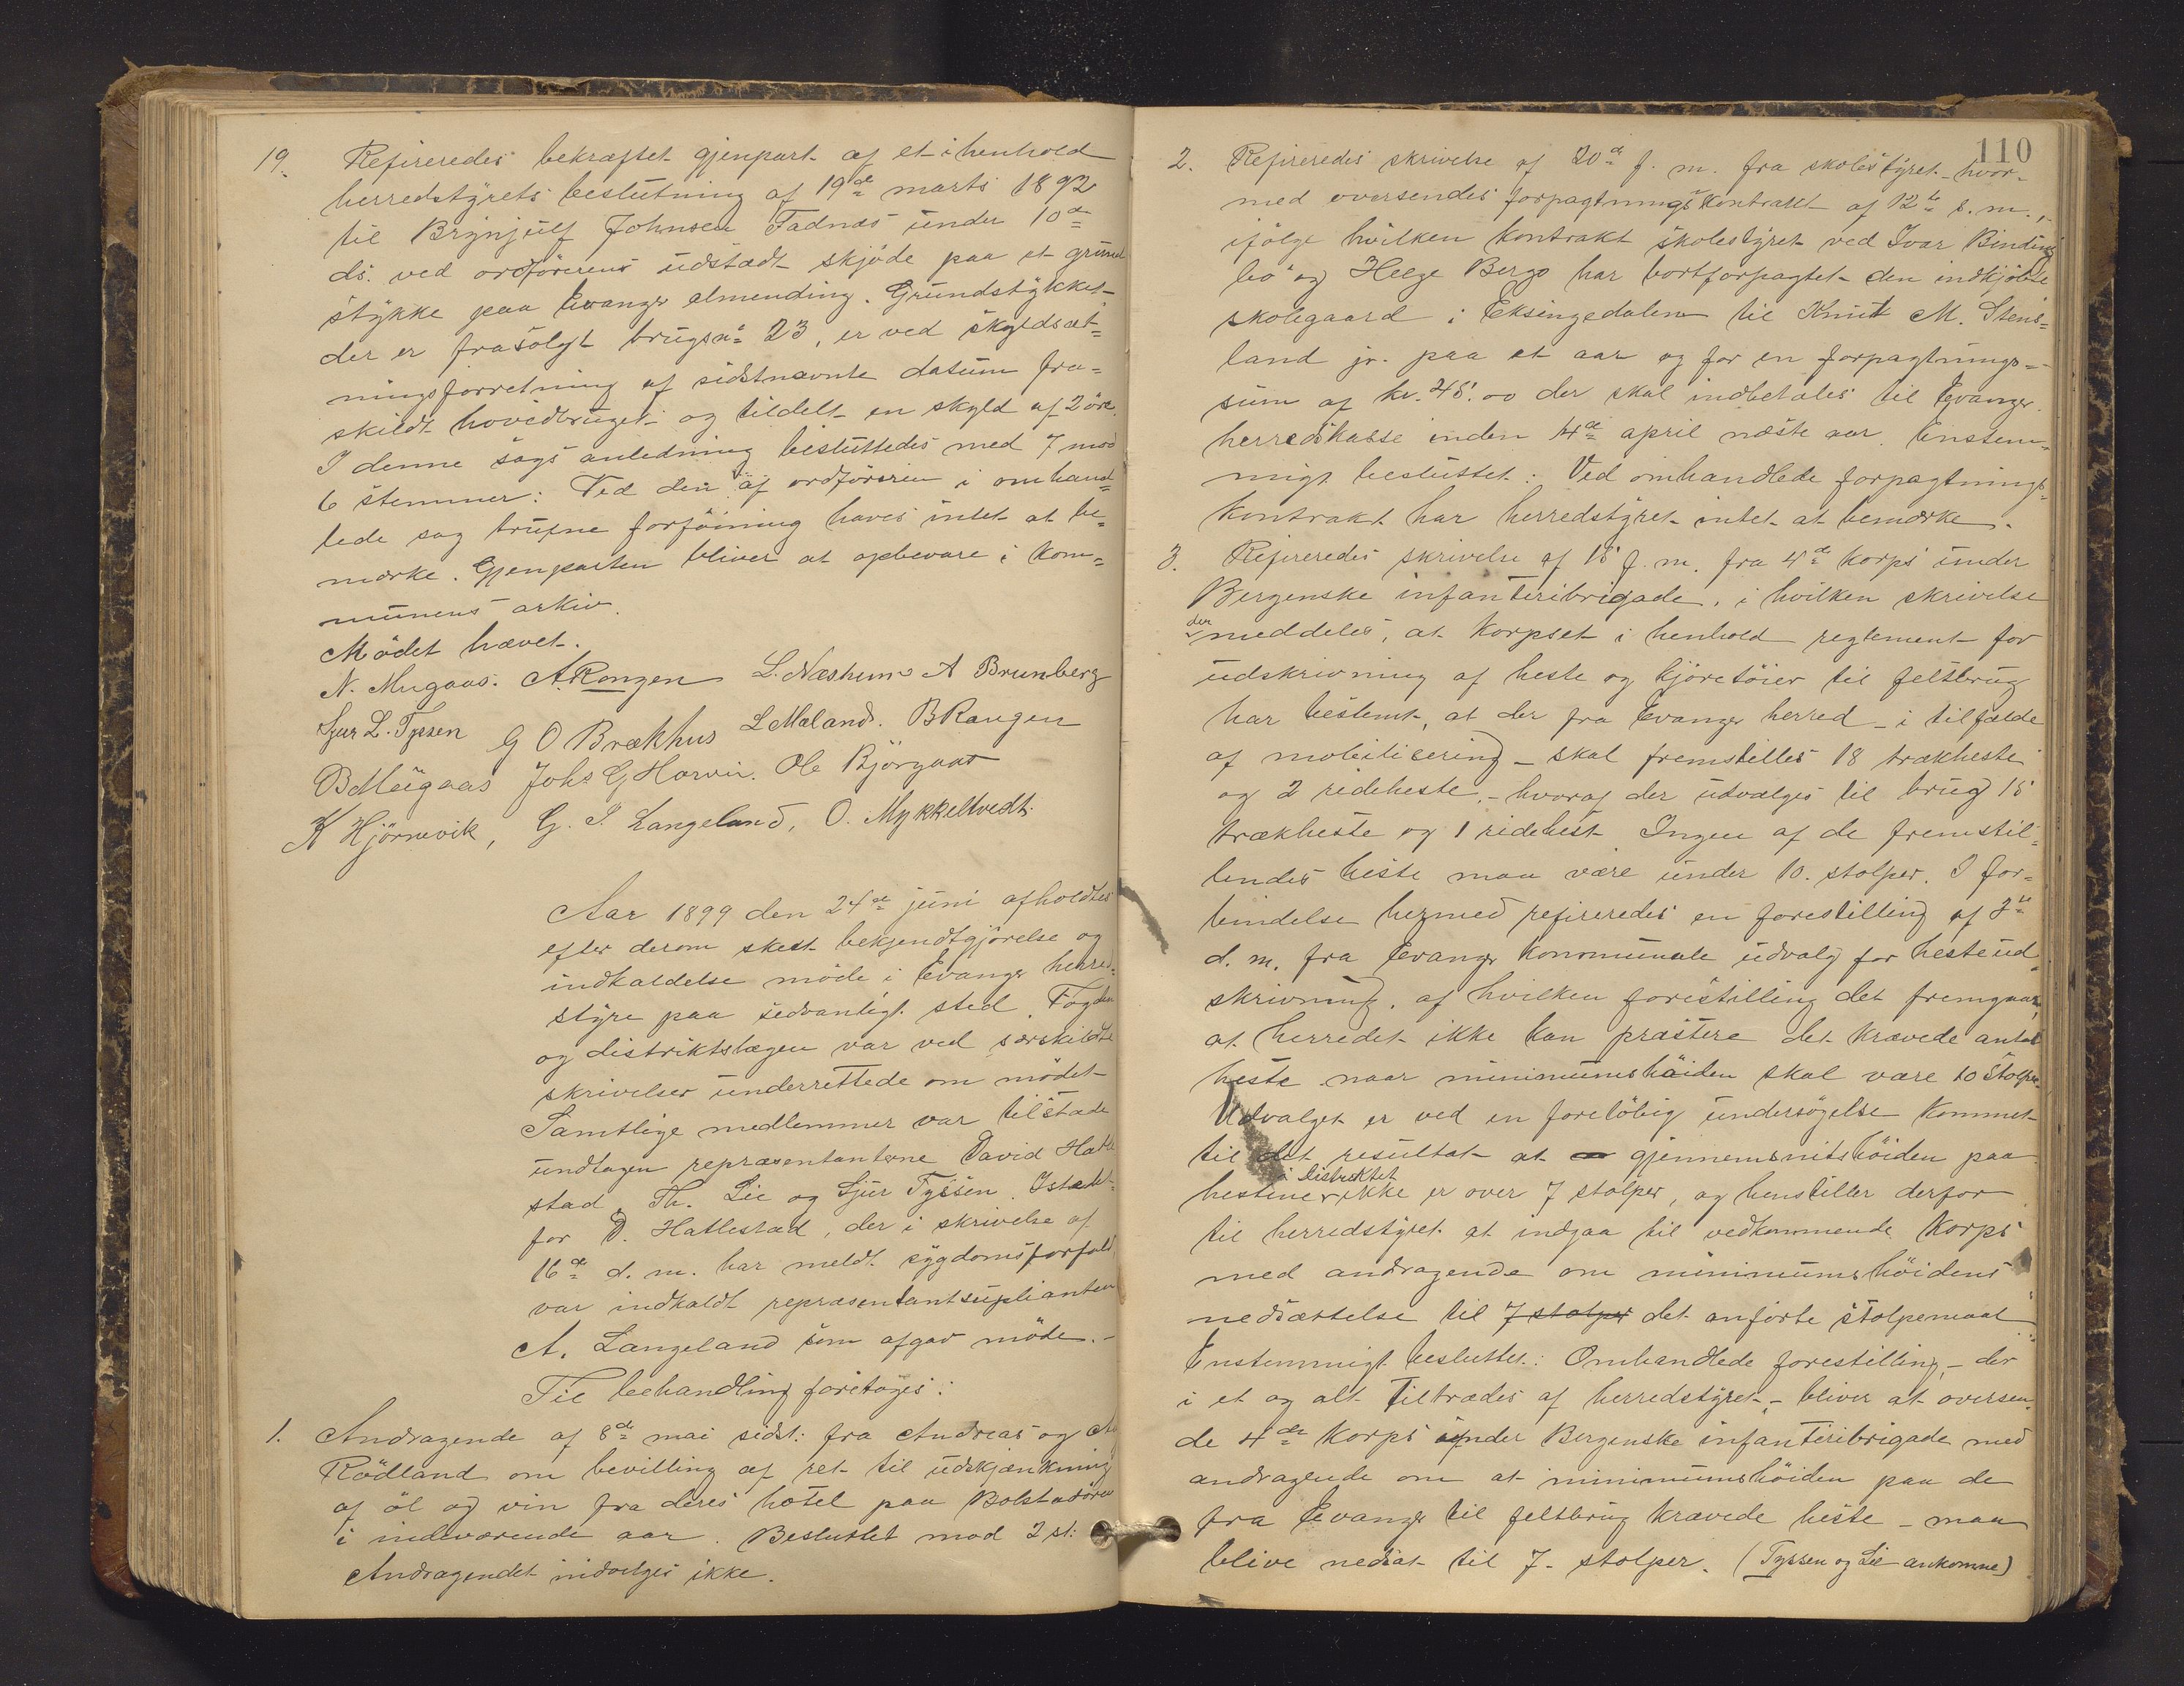 19. Refereredes bekræftet gjenpart af et i henhold
herredstyrets beslutning af 19de marts 1892
til Brynjulf Johnsen Fadnæs under 10de
ds. ved ordförerens udstædt skjöde paa et grund
stykke paa Evanger almending. Grundstykket
der er frasolgt brugsn: 23, er ved skyldsæt=
ningsforretning af sidstnævnte datum fra=
skildt hovedbruget og tildelt en skyld af 2 öre.
I denne sags anledning besluttedes med 7 mod
6 stemmer: Ved den af ordföreren i omhand=
lede sag trufne forföining haves intet at be=
mærke. Gjenparten bliver at opbevare i kom=
munens arkiv.
Mödet hævet.
N. Mugaas. A. Rongen L. Næsheim A Brunberg
Sjur L. Tyssen G O Brækhus L Mæland. B Rangen
B Mügaas Johs G Horvei. Ole Björgaas
K Hjörnevik, G. I. Langeland, O. Mykkeltvedt.
Aar 1899 den 24de juni afholdtes
efter derom skeet bekjendtgjörelse og
indkaldelse möde i Evanger herred=
styre paa sedvanligt sted. Fogden
og distriktslægen var ved særskildte
skrivelser underrettede om mödet
Samtlige medlemmer var tilstæde
undtagen repræsentanterne David Hatle
stad, Th. Lie og Sjur Tyssen. Istedet
for D. Hatlestad, der i skrivelse af
16de d. m. har meldt sygdomsforfald
var indkaldt repræsentantsuplianten
A. Langeland som afgav möde.-
Til beehandling foretoges:
1. Andragende af 8de mai sidst: fra Andreas og
Rödland om bevilling af ret til udskjænkning
af öl og vin fra deres hotel paa Bolstadören
i indeværende aar. Besluttet mod 2 st:
Andragendet indvelges ikke.
110
2. Refereredes skrivelse af 20de f. m. fra skolestyret hvor-
med oversendes forpagtningskontrakt af 12te s. m.,
ifölge hvilken kontrakt skolestyret ved Ivar Bindings
bö og Helge Bergo har bortforpagtet den indkjöbte
skolegaard i Eksingedalen til Knut M. Stens=
land jr. paa et aar og for en forpagtnings=
sum af kr. 45.00 der skal indbetales til Evanger
herredskasse inden 14de april næste aar. Enstem=
migt besluttet: Ved omhandlede forpagtnings=
kontrakt har herredstyret intet at bemærke.
3. Refereredes skrivelse af 15 f. m. fra 4de korps under
Bergenske infanteribrigade, i hvilken skrivelse
der
meddeles, at korpset i henhold reglement for
udskrivning af heste og kjöretöier til feltbrug
har bestemt, at der fra Evanger herred - i tilfælde
af mobilisering - skal fremstilles 18 trækheste
og 2 rideheste, - hvoraf der udvælges til brug 15
trækheste og 1 ridehest. Ingen af de fremstil=
lendes heste maa være under 10. stolper. I for=
bindelse hermed refereredes en forestilling af 3de
d. m. fra Evanger kommunale udvalg for hesteud=
skrivning, af hvilken forestilling det fremgaar,
at herredet ikke kan præstere det krævede antal
heste naar minimumshöiden skal være 10 stolper.
Udvalget er ved en forelöbig undersögelse kommet
til det resultat at gjennemsnitshöiden paa
i distriktet
hestene ikke er over 7 stolper, og henstiller derfor
til herredstyret at indgaa til vedkommende korps
med andragende om minimumshöidens
nedsættelse til 7 stolper det anförte stolpemaal
Enstemmigt besluttet: Omhandlede forestilling, - der
i et og alt tiltrædes af herredstyret, - bliver at oversen=
de 4de korps under Bergenske infanteribrigade med
andragende om at minimumshöiden paa de
fra Evanger til feltbrug krævede heste - maa
blive nedsat til 7- stolper. (Tyssen og Lie ankomne)